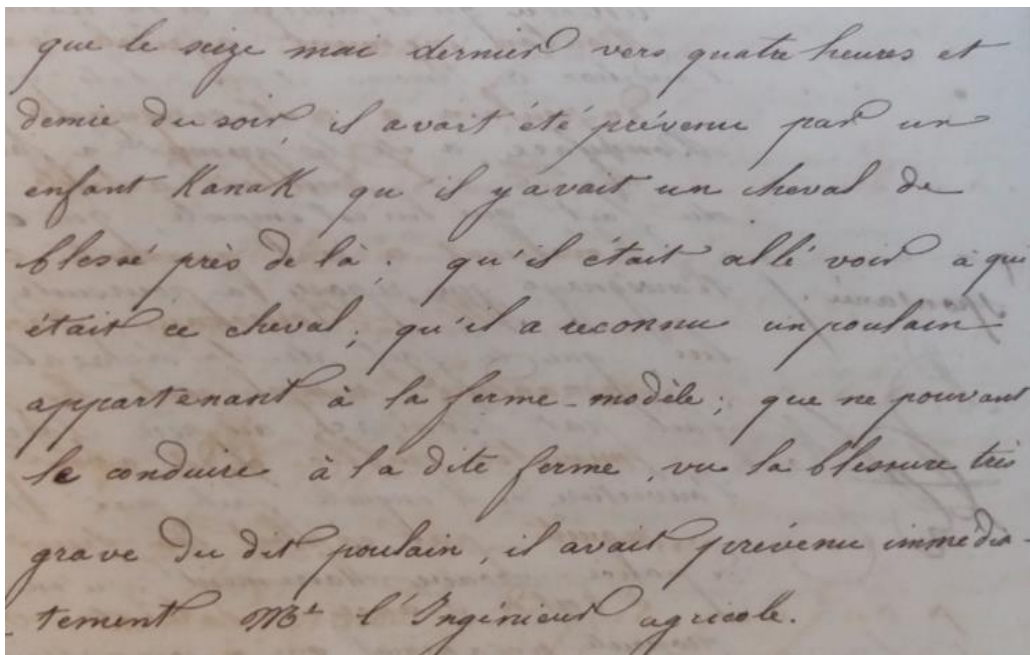 que le seize mai dernier vers quatre heures et
demie du soir, il avait été prévenu par un
enfant Kanak qu'il y avait un cheval de
blessé près de là ; qu'il était allé voir à qui
était ce cheval ; qu'il a reconnu un poulain
appartenant à la ferme-modèle ; que ne pouvant
le conduire à la dite ferme, vu la blessure très
grave du dit poulain, il avait prévenu immédia-
-tement Mr l'Ingénieur agricole.